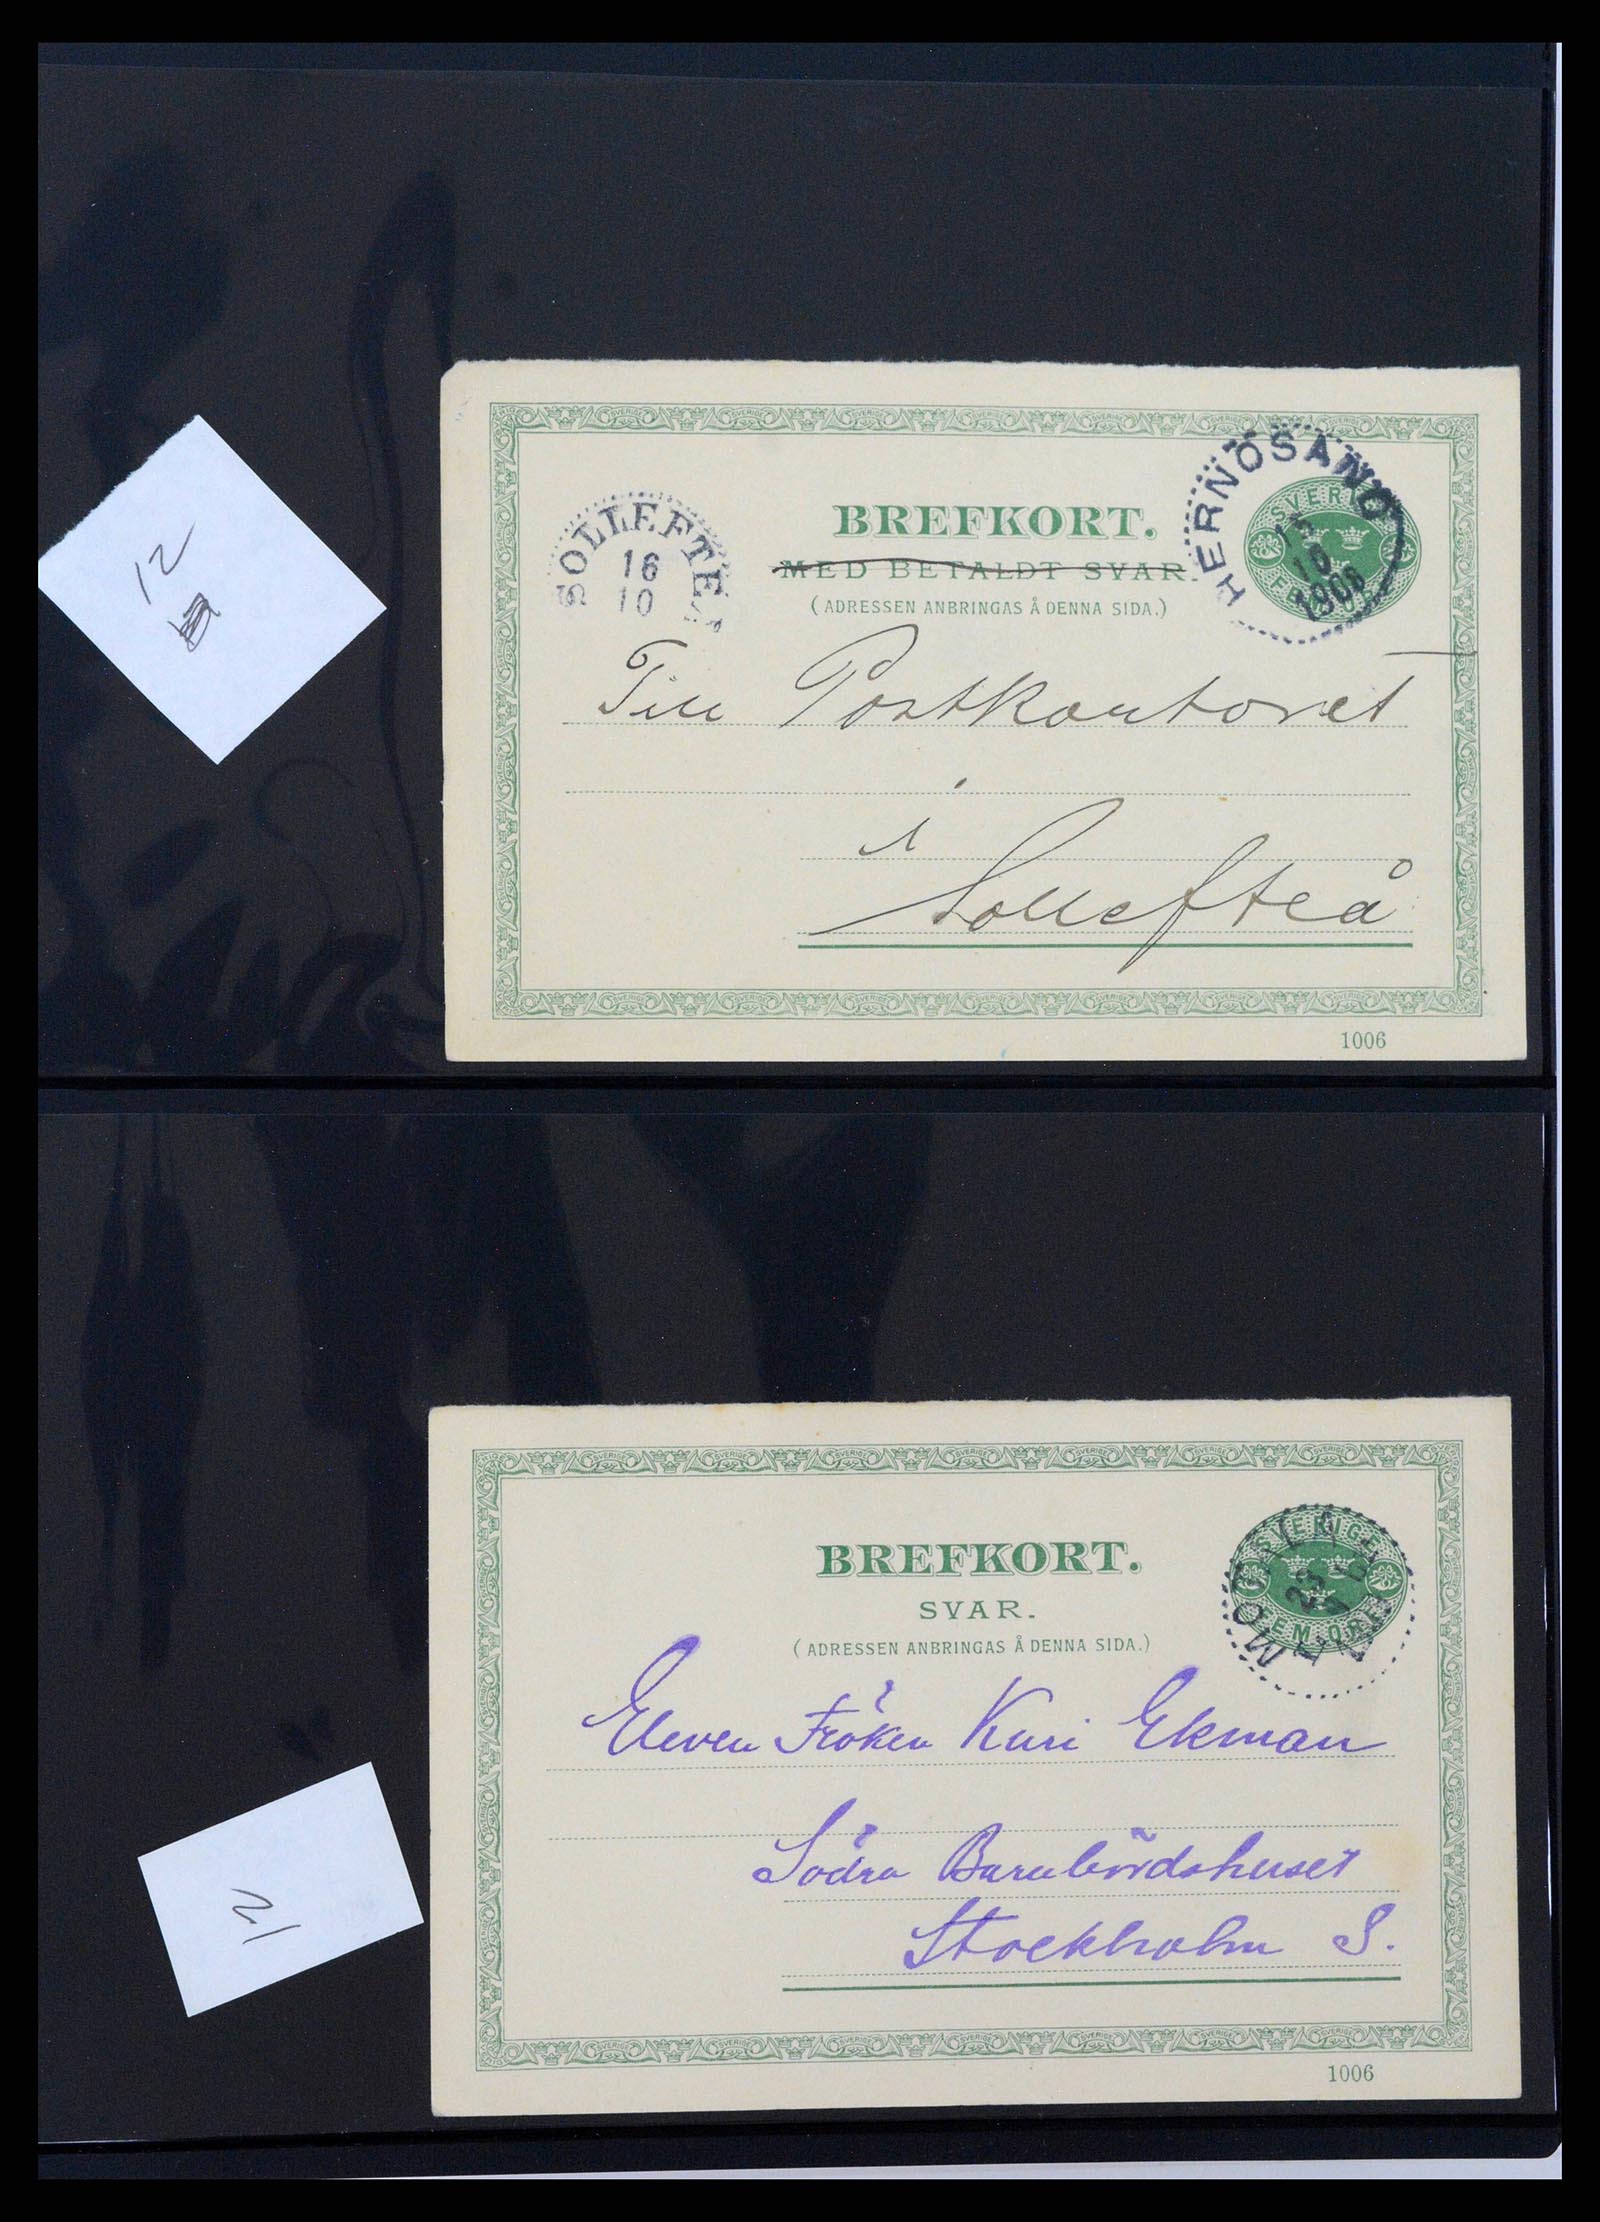 12
HERNÖSAND
15
10
1906
SOLLEFTEÅ
16
10
BREFKORT.
MED BETALDT SVAR.
(ADRESSEN ANBRINGAS Å DENNA SIDA.)
Till Postkontoret
i
Sollefteå
1006
SVERIGE
FEM ÖRE
BREFKORT.
SVAR.
(ADRESSEN ANBRINGAS Å DENNA SIDA.)
Eleven Fröken Kari Ekman
Södra Barnbördshuset
Stockholm S.
12
1006